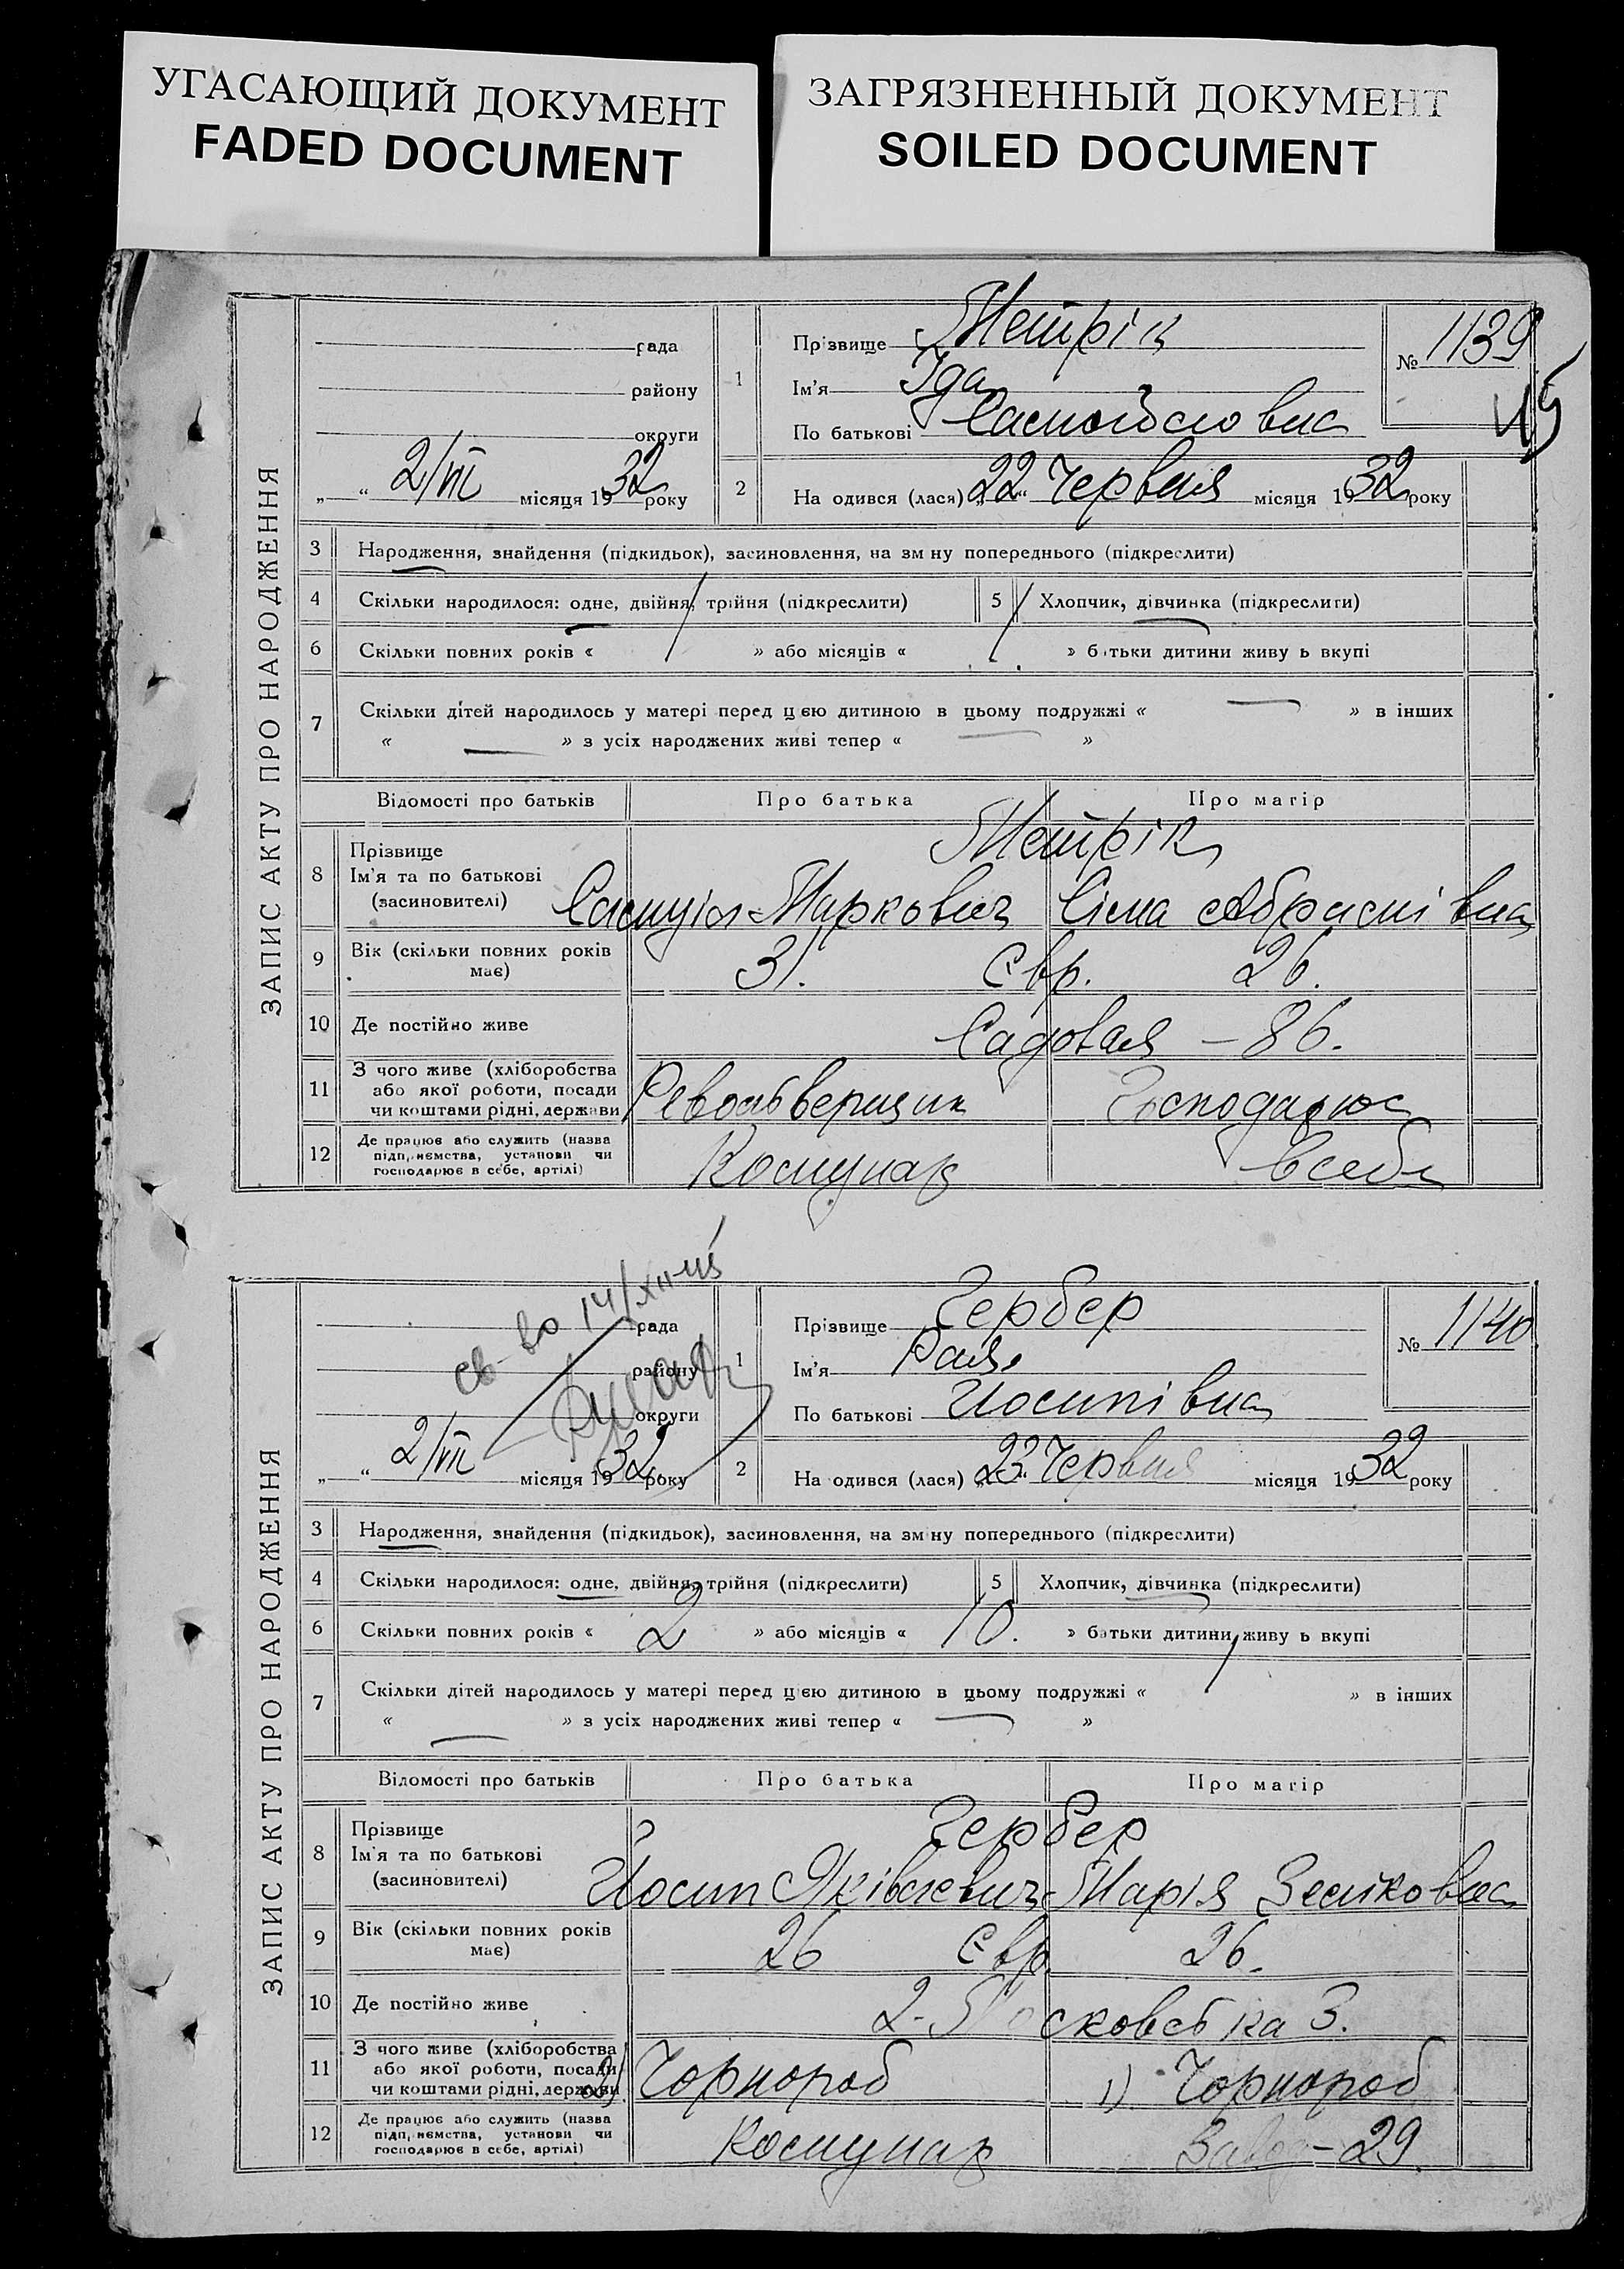 УГАСАЮЩИЙ ДОКУМЕНТ
FADED DOCUMENT
ЗАГРЯЗНЕННЫЙ ДОКУМЕНТ
SOILED DOCUMENT
ЗАПИС АКТУ ПРО НАРОДЖЕННЯ
рада
району
округи
„ “ 2/VII місяця 1932 року
1
Прізвище Метрік
Ім'я Іда
По батькові
№ 1139
45
2
На одився (лася) „22“ Червня місяця 1932 року
3 Народження, знайдення (підкидьок), засиновлення, на зм ну попереднього (підкреслити)
4 Скільки народилося: одне, двійня, трійня (підкреслити)
5 Хлопчик, дівчинка (підкреслити)
6 Скільки повних років « / » або місяців « / » б тьки дитини живу ь вкупі
7 Скільки дітей народилось у матері перед цією дитиною в цьому подружжі « — » в інших
« — » з усіх народжених живі тепер « — »
Відомості про батьків
Про батька
Про матір
8 Прізвище
Ім'я та по батькові
(засиновителі)
Метрік
Самуіл Маркович Сіма Абрамівна
9 Вік (скільки повних років
має)
31. Євр. 26.
10 Де постійно живе
Садовая – 86.
11 З чого живе (хліборобства
або якої роботи, посади
чи коштами рідні, держави
Револьверщик
Господарює
12 Де працює або служить (назва
підприємства, установи чи
господарює в себе, артілі)
Комунар
всебе
ЗАПИС АКТУ ПРО НАРОДЖЕННЯ
св-во 14/XII-45
рада
району
округи
„ “ 2/VII місяця 1932 року
1
Прізвище Гербер
Ім'я Рая
По батькові Йосипівна
№ 1140
2
На одився (лася) „23“ Червня місяця 1932 року
3 Народження, знайдення (підкидьок), засиновлення, на зм ну попереднього (підкреслити)
4 Скільки народилося: одне, двійня, трійня (підкреслити)
5 Хлопчик, дівчинка (підкреслити)
6 Скільки повних років « 2 » або місяців « 10. » батьки дитини живу ь вкупі
7 Скільки дітей народилось у матері перед цією дитиною в цьому подружжі « / » в інших
« — » з усіх народжених живі тепер « — »
Відомості про батьків
Про батька
Про матір
8 Прізвище
Ім'я та по батькові
(засиновителі)
Гербер
Йосип Яківлевич Марія Зейковна
9 Вік (скільки повних років
має)
26 Євр. 26.
10 Де постійно живе
2-Московська 3.
11 З чого живе (хліборобства
або якої роботи, посади
чи коштами рідні, держави
2) Чорнороб
1) Чорнороб
12 Де працює або служить (назва
підприємства, установи чи
господарює в себе, артілі)
Комунар
Завод – 29